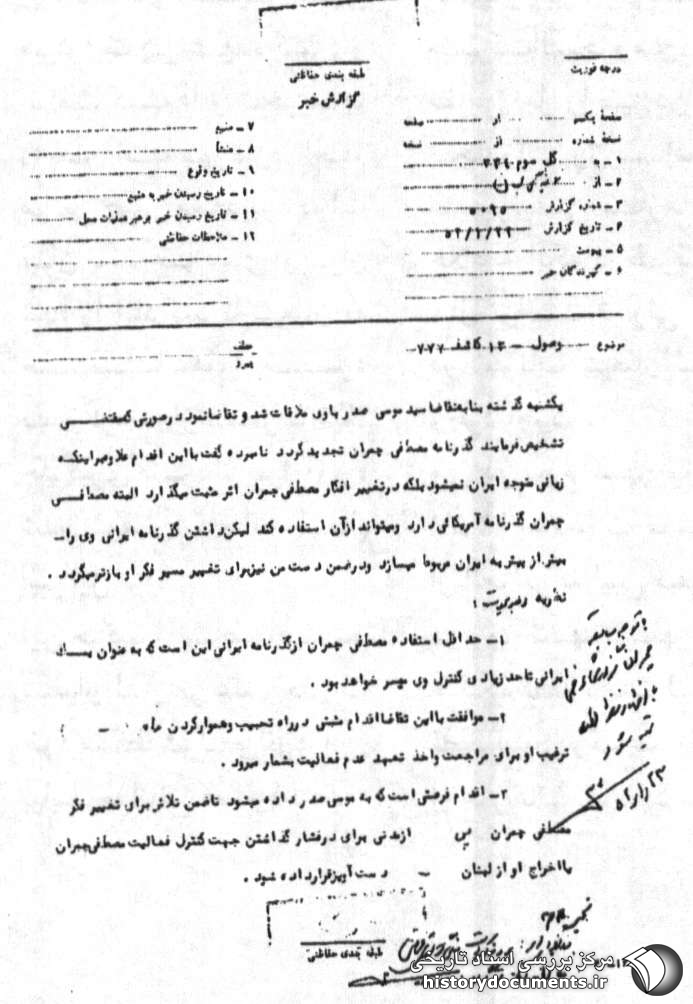 طبقه بندی حفاظتی
گزارش خبر
درجه فوریت
صفحه یکم از صفحه
نسخه شماره از نسخه
۱ـ به کل سوم ۳۳۴
۲ـ از
۳ـ شماره گزارش ۵۰۹۵
۴ـ تاریخ گزارش ۵۲/۲/۲۲
۵ـ پیوست
۶ـ گیرندگان خبر
۷ـ منبع
۸ـ منشأ
۹ـ تاریخ وقوع
۱۰ـ تاریخ رسیدن خبر به منبع
۱۱ـ تاریخ رسیدن خبر برهبر عملیات محل
۱۲ـ ملاحظات حفاظتی
موضوع وصول ـ ۱۲ کاشف ۷۷۷
عطف
پیرو
یکشنبه گذشته بنابتقاضا سید موسی صدر با وی ملاقات شد و تقاضا نمود در صورتی که مقتضی
تشخیص فرمایند گذرنامه مصطفی چمران تجدید گردد نامبرده گفت با این اقدام علاوه بر اینکه
زیانی متوجه ایران نمیشود بلکه در تغییر افکار مصطفی چمران اثر مثبت میگذارد البته مصطفی
چمران گذرنامه آمریکائی دارد ومیتواند از آن استفاده کند لیکن داشتن گذرنامه ایرانی وی راـ
بیش از پیش به ایران مربوط میسازد ودر ضمن دست من نیز برای تغییر مسیر فکر او بازتر میگردد .
نظریه
۱ـ حداقل استفاده مصطفی چمران از گذرنامه ایرانی این است که به عنوان یک
ایرانی تاحد زیادی کنترل وی میسر خواهد بود .
۲ـ موافقت با این تقاضا اقدام مثبتی در راه تحبیب وهموار کردن راه
ترغیب او برای مراجعت واخذ تعهد عدم فعالیت بشمار میرود .
۳ـ اقدام فرصتی است که به موسی صدر داده میشود تاضمن تلاش برای تغییر فکر
مصطفی چمران پس از مدتی برای در فشار گذاشتن جهت کنترل فعالیت مصطفی چمران
یا اخراج او از لبنان ـ دست آویز قرار داده شود .
طبقه بندی حفاظتی
مرکز بررسی اسناد تاریخی
historydocuments.ir